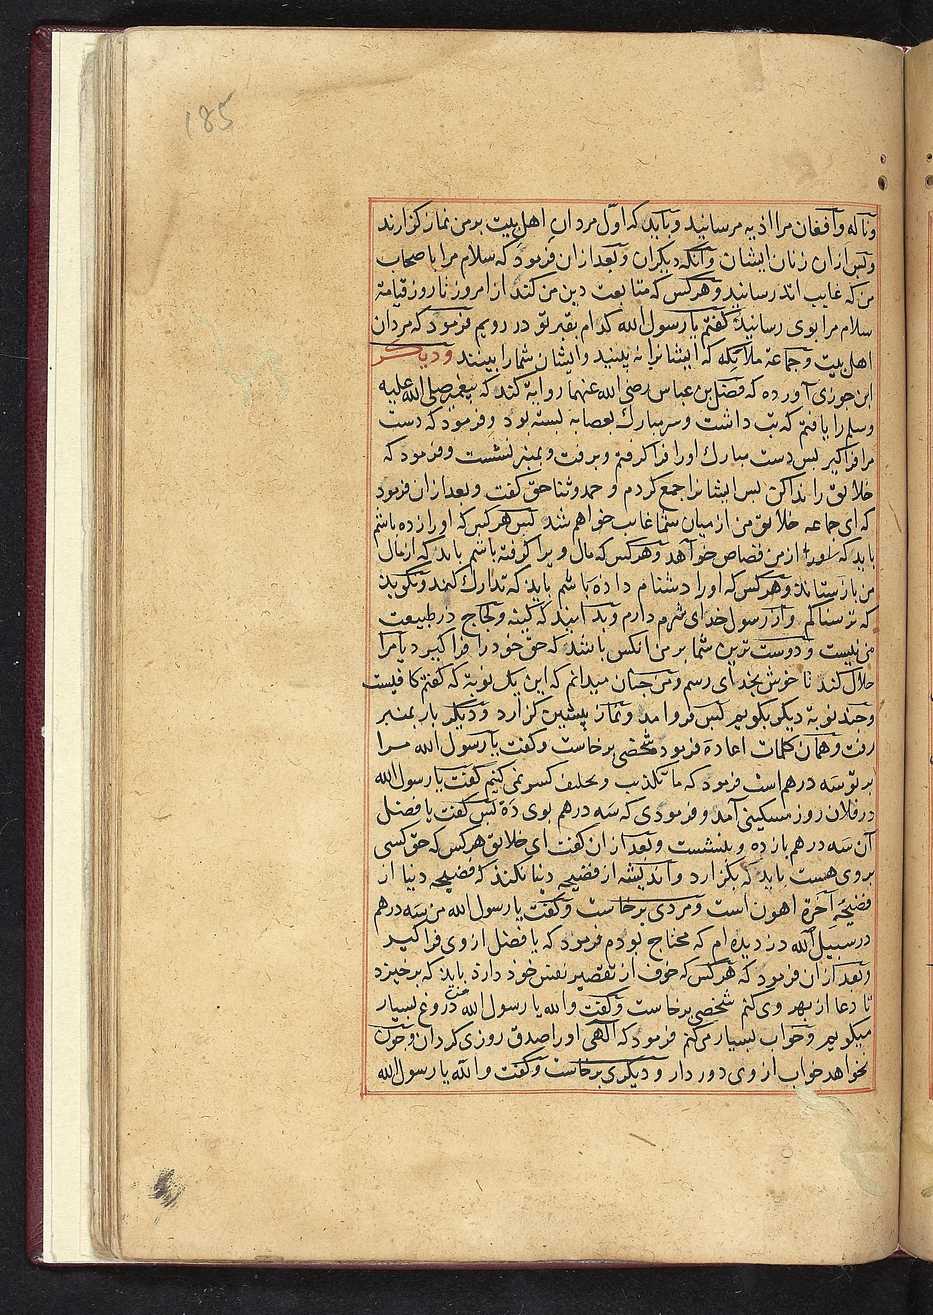 185
وناله وافغان مرا اذیه مرسانید و باید که اوّل مردان اهل بیت بر من نماز کزارند
و بس ازان زنان ایشان و آنکه دیکران و بعد ازان فرمود که سلام مرا باصحاب
من که غایب اند رسانید و هرکس که متابعت دین من کند از امروز تا روز قیامة
سلام مرا بوی رسانید کفتم یا رسول الله کدام بقبر تو در رویم فرمود که مردان
اهل بیت و جماعة ملائکه که ایشانرا نه بینید و ایشان شما را بینند و دیکر
ابن جوزی آورده که فضل بن عباس رضی الله عنهما روایة کند که پیغمبر صلی الله علیه
وسلم را یافتم که تب داشت و سر مبارک بعصابه بسته بود و فرمود که دست
مرا فراکیر بس دست مبارک او را فراکرفتم و برفت و بمنبر نشست و فرمود که
خلایق را ندا کن بس ایشانرا جمع کردم و حمد و ثنا حق کفت و بعد ازان فرمود
که ای جماعه خلایق من از میان شما غایب خواهم شد بس هرکس که او را زده باشم
باید که از من قصاص خواهد و هرکس که مال ویرا کرفته باشم باید که از مال
من باز ستاند و هرکس که او را دشنام داده باشم باید که تدارک کند و نکوید
که ترسناکم و از رسول خدای شرم دارم و بدانید که کینه و لجاج در طبیعت
من نیست و دوست ترین شما بر من انکس باشد که حق خود را فراکیرد یا مرا
حلال کند تا خوش بخدای رسم و من چنان میدانم که این یک نوبة که کفتم کافیست
و چند نوبة دیکر بکویم بس فروامد و نماز پیشین کزارد و دیکر بار بمنبر
رفت و همان کلمات اعاده فرمود شخصی برخاست و کفت یا رسول الله مرا
بر تو سه درهم است فرمود که ما تکذیب و تحلیف کسر نمی کنیم کفت یا رسول الله
در فلان روز مسکینی آمد و فرمودی که سه درهم بوی ده بس کفت یا فضل
آن سه درهم باز ده و بنشست و بعد ازان کفت ای خلایق هرکس که حق کسی
بر وی هست باید که بکزارد و اندیشه از فضیحه دنیا نکند که فضیحه دنیا از
فضیحه آخرة اهون است و مردی برخاست و کفت یا رسول الله من سه درهم
در سبیل الله دزدیده ام که محتاج بودم فرمود که یا فضل از وی فراکیر
و بعد ازان فرمود که هرکس که خوف از تقصیر نفس خود دارد باید که برخیزد
تا دعا از بهر وی کنم شخصی برخاست و کفت والله یا رسول الله من دروغ بسیار
میکویم و خواب بسیار میکنم فرمود که آلهی او را صدق روزی کردان و چون
نخواهد خواب از وی دور دار و دیکری برخاست و کفت والله یا رسول الله